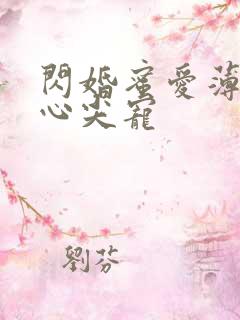 閃婚蜜愛薄
心尖寵
劉芬